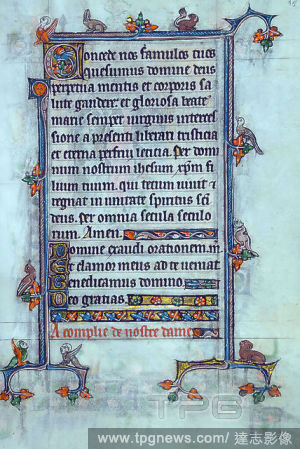 Concede nos famulos tuos
quesumus domine deus
perpetua mentis et corporis sa
lute gaudere et gloriosa beate
marie semper uirginis interces
sione a presenti liberari tristicia
et eterna perfrui leticia. Per domi
num nostrum ihesum xpm fi
lium tuum. qui tecum uiuit
regnat in unitate spiritus sci
deus. per omnia secula seculo
rum. Amen.
Domine exaudi orationem m
Et clamor meus ad te ueniat
Benedicamus domino.
Deo gratias.
A complie de nostre dame
TPG
www.tpgnews.com/ 達志影像